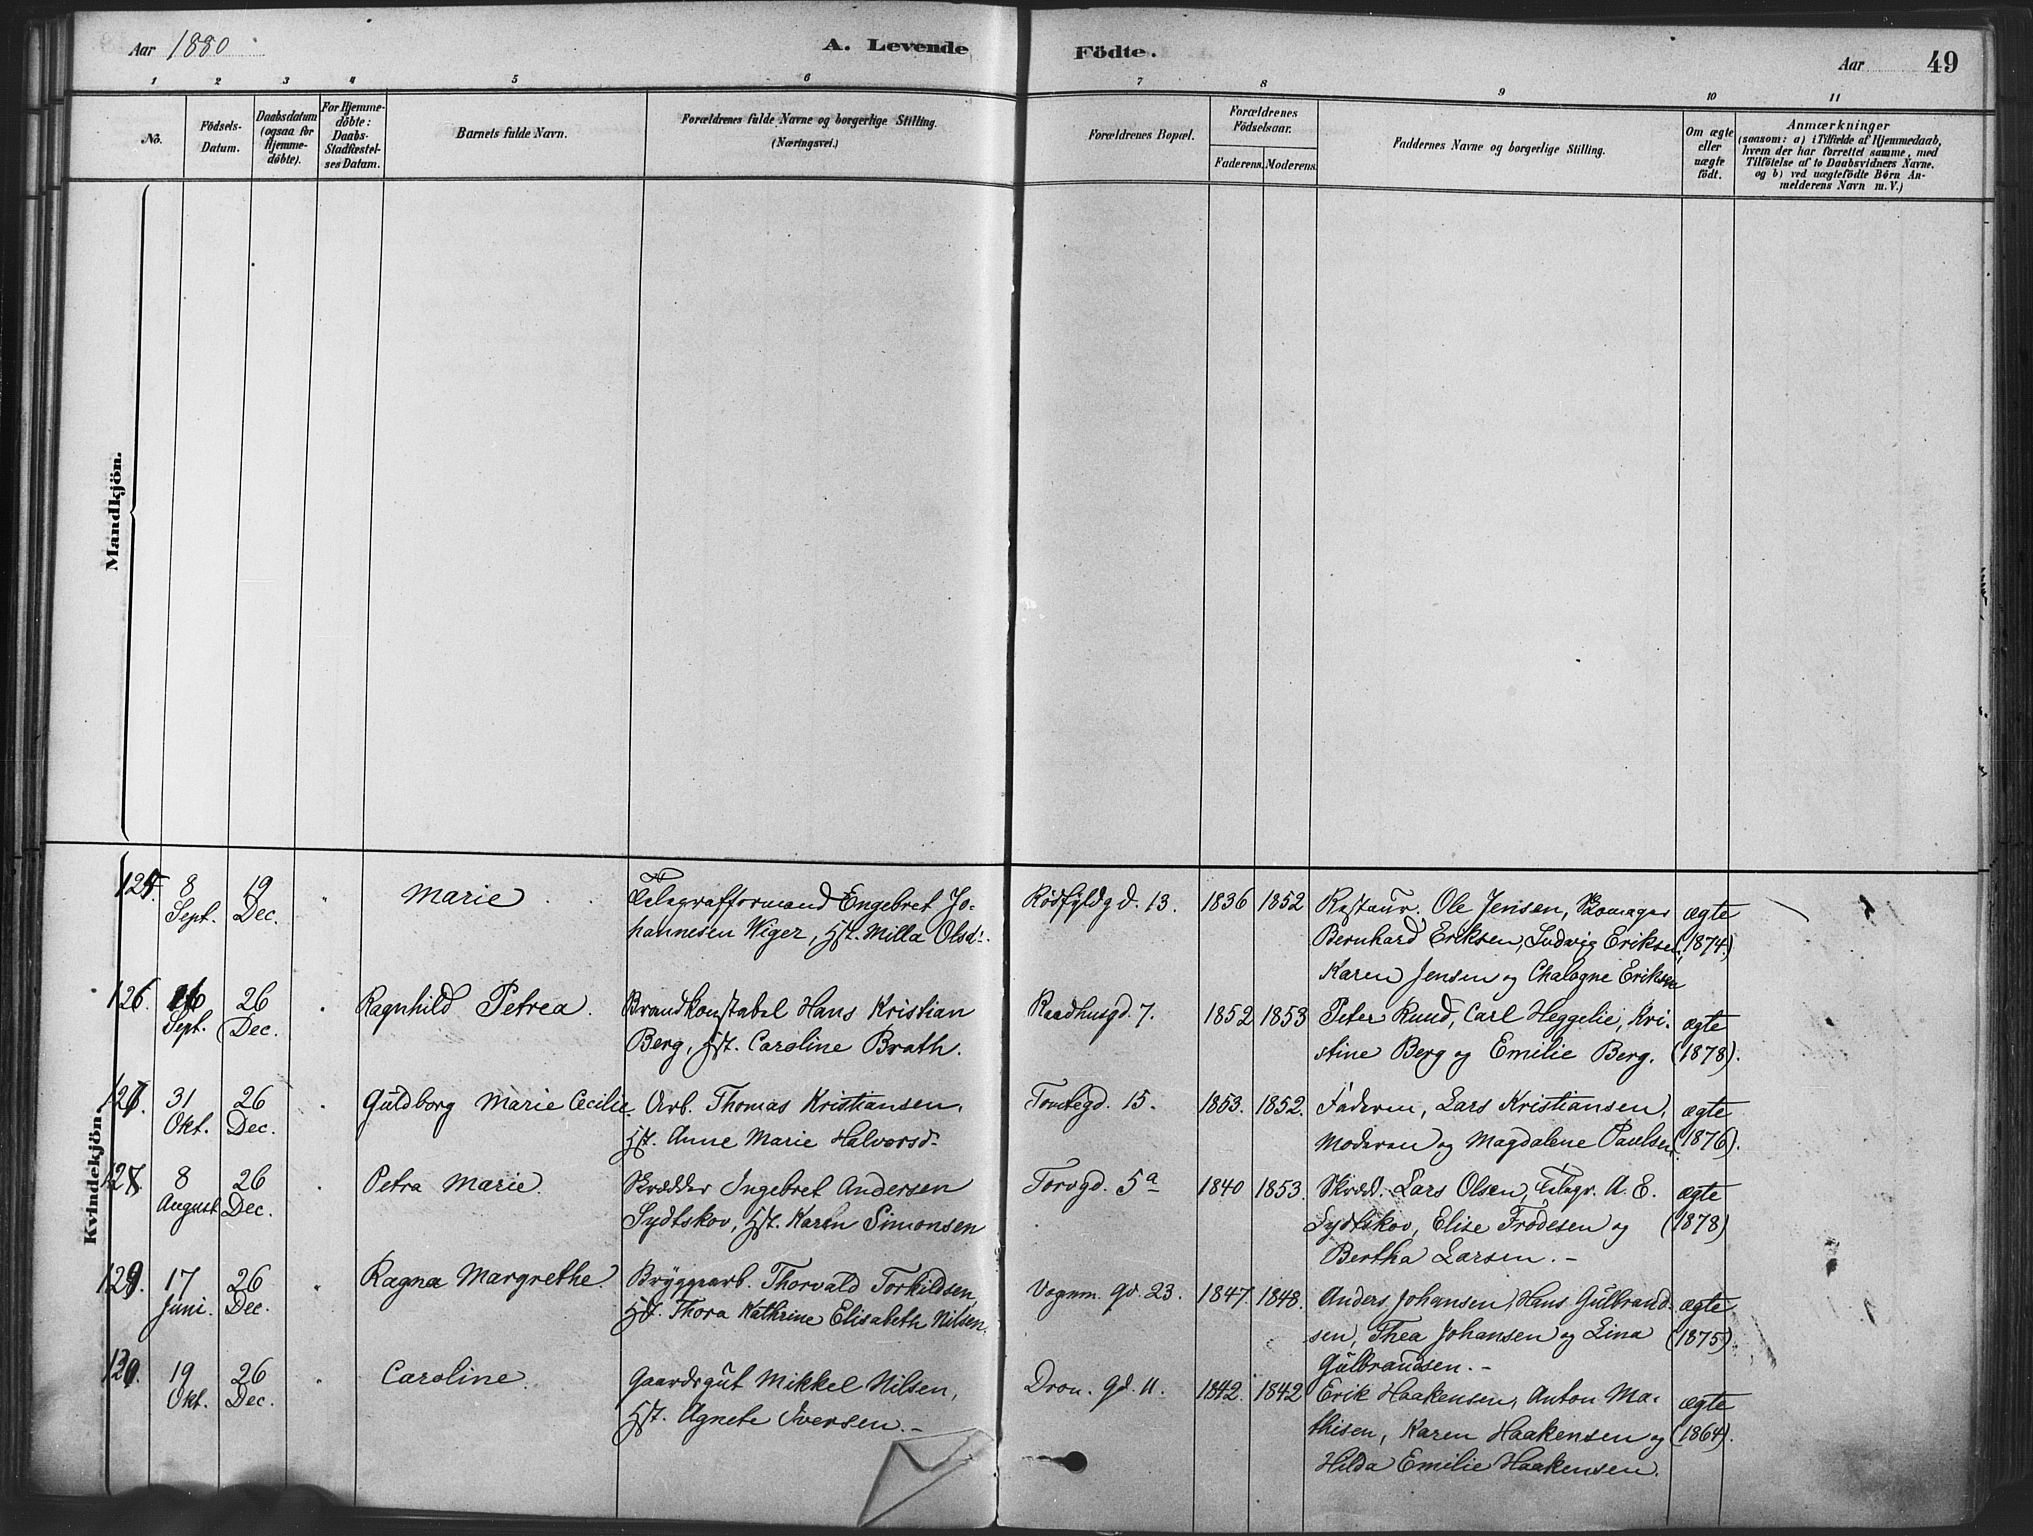 Aar 1880
A. Levende Födte.
Aar
49
1 2 3 4 5 6 7 8 9 10 11
No.
Födsels-
Datum.
Daabsdatum
(ogsaa for
Hjemme-
döbte).
For Hjemme-
döbte:
Daabs-
Stadfæstel-
ses Datum.
Barnets fulde Navn.
Forældrenes fulde Navne og borgerlige Stilling.
(Næringsvei.)
Forældrenes Bopæl.
Forældrenes
Födselsaar.
Faderens. Moderens.
Faddernes Navne og borgerlige Stilling.
Om ægte
eller
uægte
födt.
Anmærkninger
(saasom: a) i Tilfælde af Hjemmedaab,
hvem der har forrettet samme, med
Tilföielse af to Daabsvidners Navne.
og b) ved uægtefödte Börn An-
melderens Navn m. V.)
Mandkjön.
Kvindekjön.
125. 8 19 Marie Telegrafformand Engebret Jo- Rödfyldgd. 13. 1836 1852 Restaur. Ole Jensen, ægte
Sept. Dec. hannesen Wiger, Hst. Milla Olsd. Bernhard Eriksen, Ludvig Eriksen, (1874)
Karen Jensen og Eriksen
126. 26 Ragnhild Petrea. Brandkonstabel Hans Kristian Raadhusgd. 7. 1852 1853 Peter Ruud, Carl Heggelie, Kri- ægte
Sept. Dec. Berg, Hst. Caroline Brath. stine Berg og Emilie Berg. (1878).
31 26 Guldborg Marie Cecilie. Arb. Thomas Kristiansen, 15. 1853. 1852. Faderen, Lars Kristiansen, ægte
Okt. Dec. Hst. Anne Marie Halvorsd. Moderen og Magdalene Paulsen. (1876).
8 26 Petra Marie. Skrædder Ingebret Andersen Torvgd. 5a 1840 1853. Skræd. Lars Olsen, Telegr. A. E. ægte
August Dec. Sydtskov, Hst. Karen Simonsen Sydtskov, Elise Frödesen og (1878)
Bertha Larsen. -
129. 17 26 Ragna Margrethe. Bryggearb. Thorvald Torkildsen Vognm. gd. 23. 1847. 1848. Anders Johansen, Hans Gulbrand- ægte
Juni. Dec. Hst. Thora Kathrine Elisabeth Nilsen. sen, Thea Johansen og Lina (1875).
Gulbrandsen. -
19 26 Caroline. Gaardsgut Mikkel Nilsen, Dron. gd. 11. 1842. 1842 Erik Haakensen, Anton Ma- ægte
Okt. Dec. Hst. Agnete Iversen. - thisen, Karen Haakensen og (1864).
Hilda Emilie Haakensen.